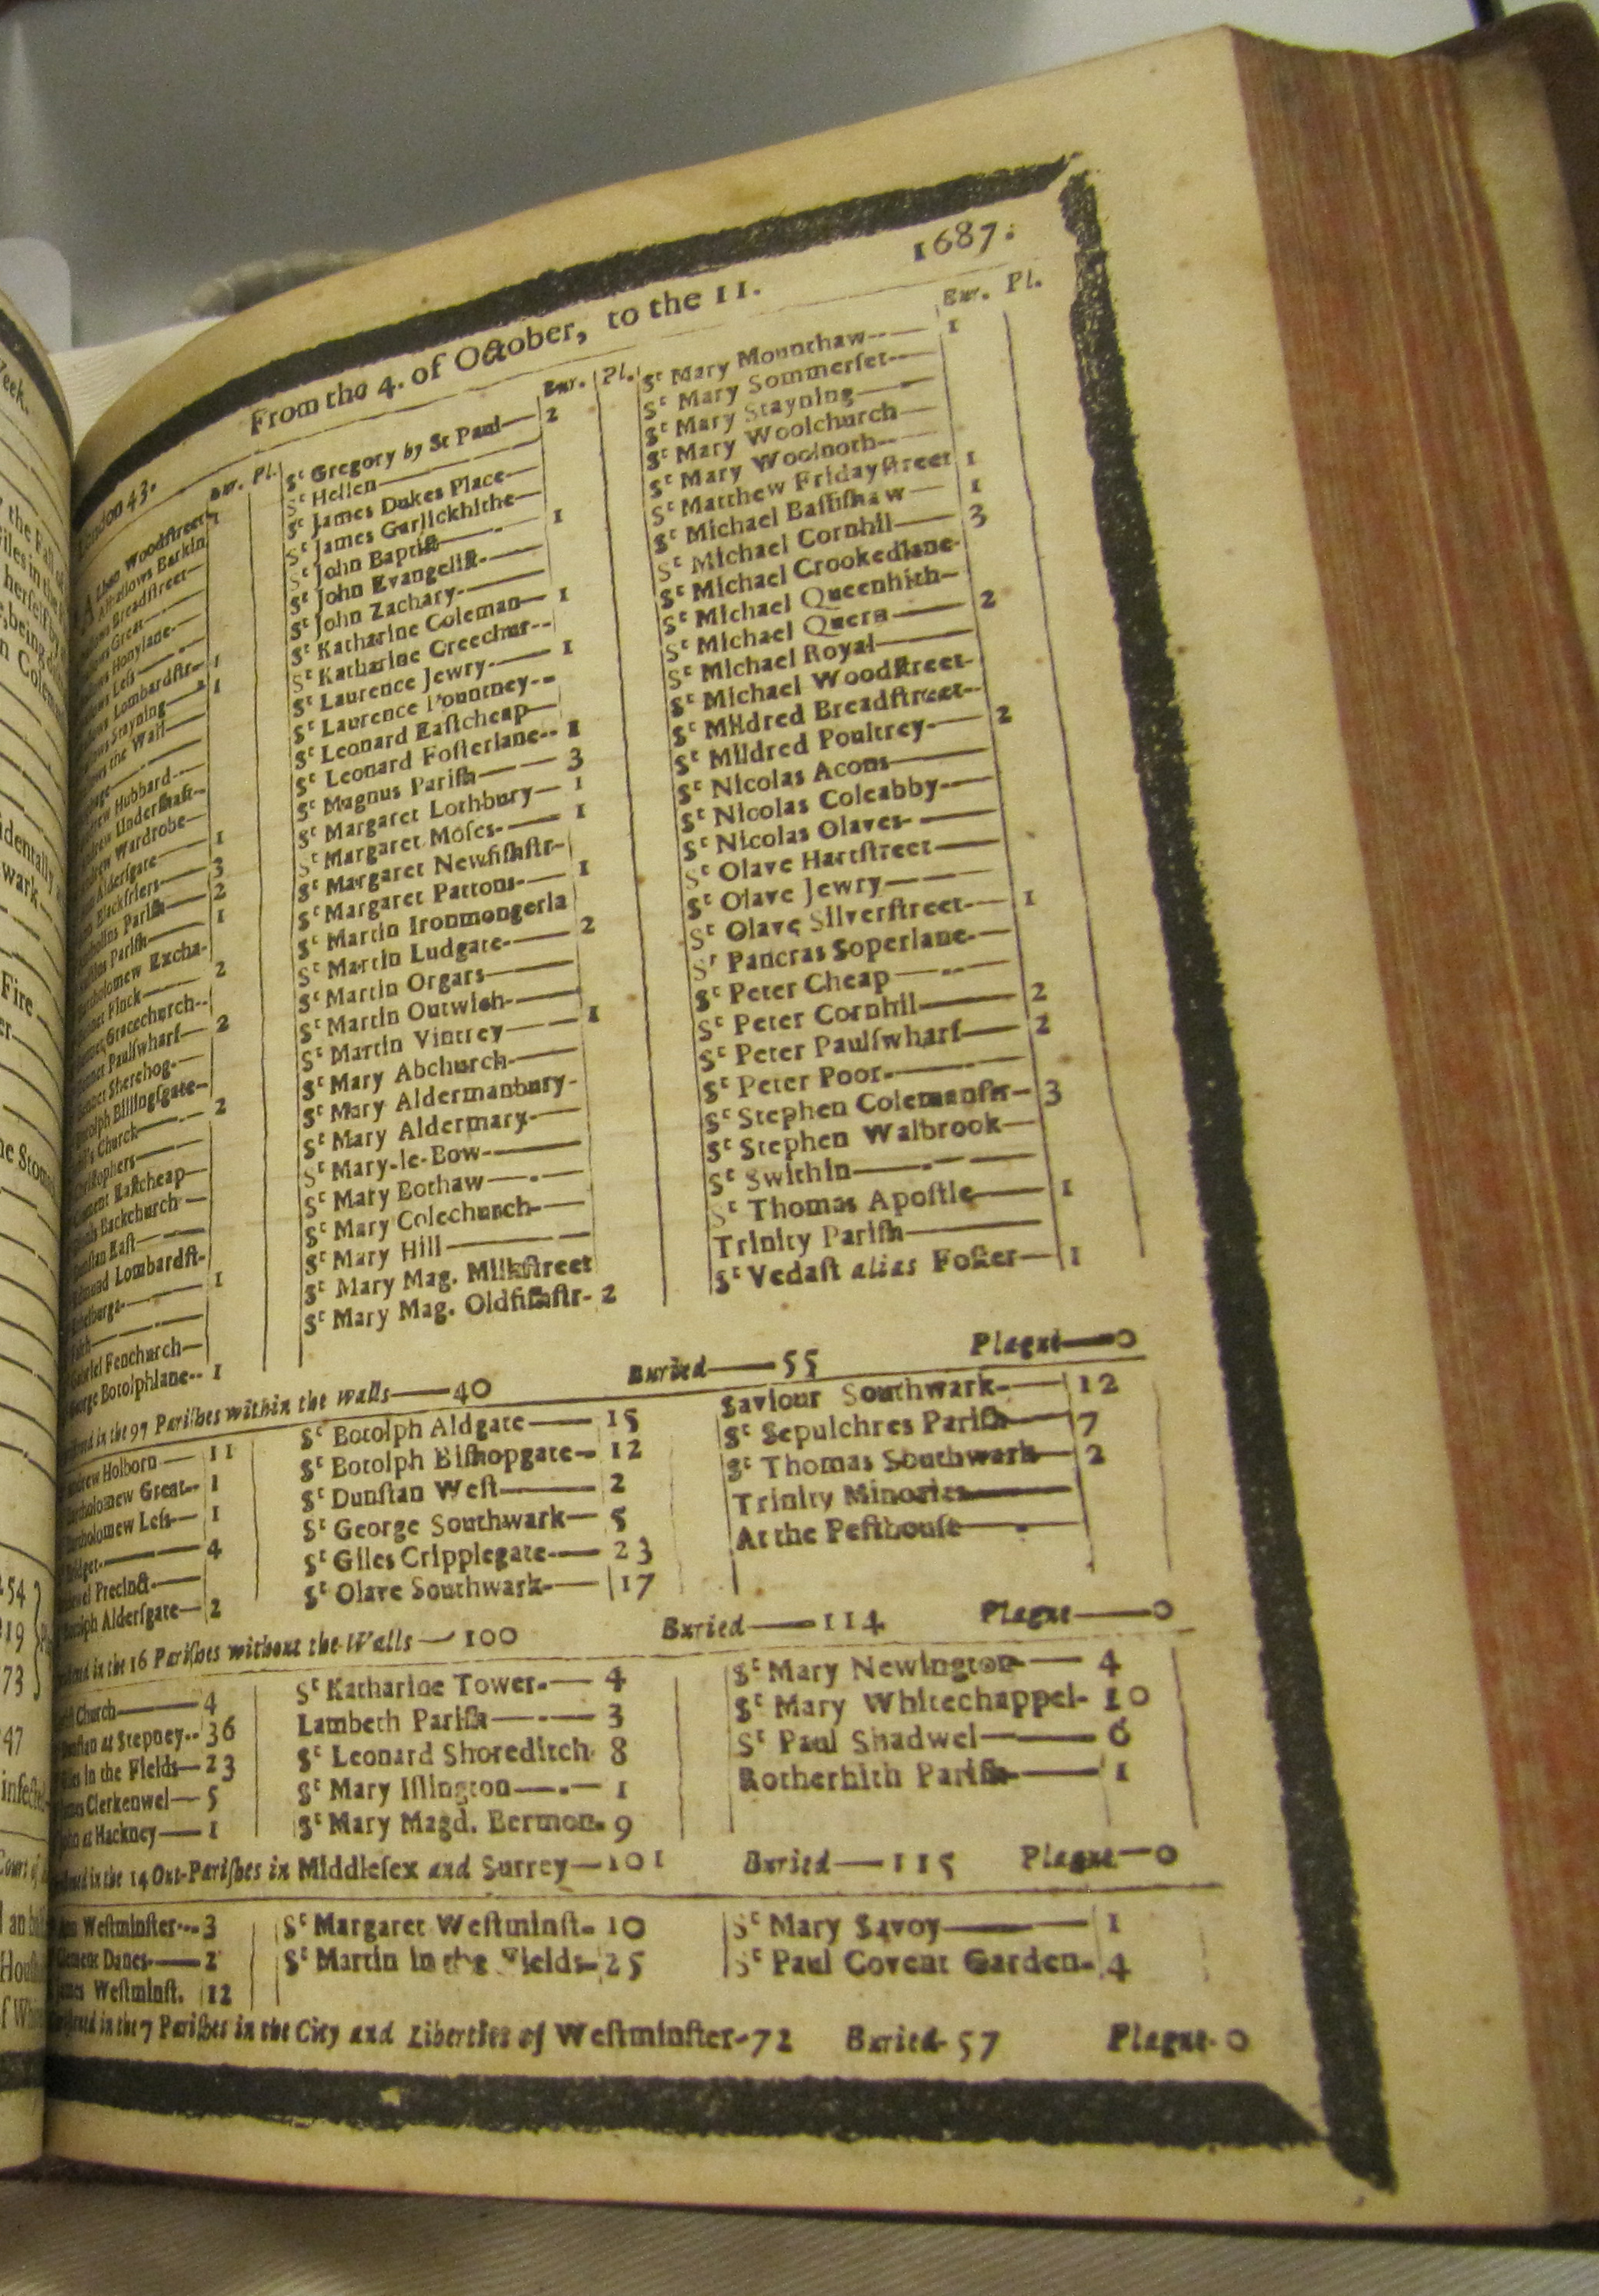 From the 4. of October, to the 11. 1687.
London 43.
Bur. Pl.
Alban Woodstreet 1
Alhallows Barkin
Breadstreet
Great
Honylane
Less
Lombardstr 1
Stayning 1
the Wall
Hubbard
Undershaft
Wardrobe
Aldersgate 1
Blackfriers 3
Parish 2
Parish 1
Bartholomew Excha-
Finck 2
Gracechurch
Paulswharf 2
Sherehog
Botolph Billingsgate
Church 2
Christophers
Clement Eastcheap
Backchurch
Dunstan East
Edmund Lombardst-
Ethelburga 1
Faith
Gabriel Fenchurch
George Botolphlane 1
Bur. Pl.
St Gregory by St Paul 2
St Hellen
St James Dukes Place
St James Garlickhithe
St John Baptist 1
St John Evangelist
St John Zachary
St Katharine Coleman 1
St Katharine Creechur
St Laurence Jewry 1
St Laurence Pountney
St Leonard Eastcheap
St Leonard Fosterlane 1
St Magnus Parish 3
St Margaret Lothbury 1
St Margaret Moses 1
St Margaret Newfishstr
St Margaret Pattons 1
St Martin Ironmongerla
St Martin Ludgate 2
St Martin Orgars
St Martin Outwich
St Martin Vintrey 1
St Mary Abchurch
St Mary Aldermanbury
St Mary Aldermary
St Mary-le-Bow
St Mary Bothaw
St Mary Colechurch
St Mary Hill
St Mary Mag. Milkstreet
St Mary Mag. Oldfishstr 2
Bur. Pl.
St Mary Mounthaw 1
St Mary Sommerset
St Mary Stayning
St Mary Woolchurch
St Mary Woolnoth
St Matthew Fridaystreet 1
St Michael Bassishaw 1
St Michael Cornhil 3
St Michael Crookedlane
St Michael Queenhith
St Michael Quern 2
St Michael Royal
St Michael Woodstreet
St Mildred Breadstreet
St Mildred Poultrey 2
St Nicolas Acons
St Nicolas Coleabby
St Nicolas Olaves
St Olave Hartstreet
St Olave Jewry
St Olave Silverstreet 1
St Pancras Soperlane
St Peter Cheap
St Peter Cornhil 2
St Peter Paulswharf 2
St Peter Poor
St Stephen Colemanstr 3
St Stephen Walbrook
St Swithin
St Thomas Apostle 1
Trinity Parish
St Vedast alias Foster 1
in the 97 Parishes within the walls 40 Buried 55 Plague 0
Andrew Holborn 11
Bartholomew Great 1
Bartholomew Less 1
Bridget 4
Bridewel Precinct
Botolph Aldersgate 2
St Botolph Aldgate 15
St Botolph Bishopgate 12
St Dunstan West 2
St George Southwark 5
St Giles Cripplegate 23
St Olave Southwark 17
Saviour Southwark 12
St Sepulchres Parish 7
St Thomas Southwark 2
Trinity Minories
At the Pesthouse
in the 16 Parishes without the Walls 100 Buried 114 Plague 0
Church 4
Dunstan at Stepney 36
Giles in the Fields 23
James Clerkenwel 5
John at Hackney 1
St Katharine Tower 4
Lambeth Parish 3
St Leonard Shoreditch 8
St Mary Islington 1
St Mary Magd. Bermon. 9
St Mary Newington 4
St Mary Whitechappel 10
St Paul Shadwel 6
Rotherhith Parish 1
in the 14 Out-Parishes in Middlesex and Surrey 101 Buried 115 Plague 0
Westminster 3
Clement Danes 2
James Westminst. 12
St Margaret Westminst 10
St Martin in the Fields 25
St Mary Savoy 1
St Paul Covent Garden 4
in the 7 Parishes in the City and Liberties of Westminster 72 Buried 57 Plague 0